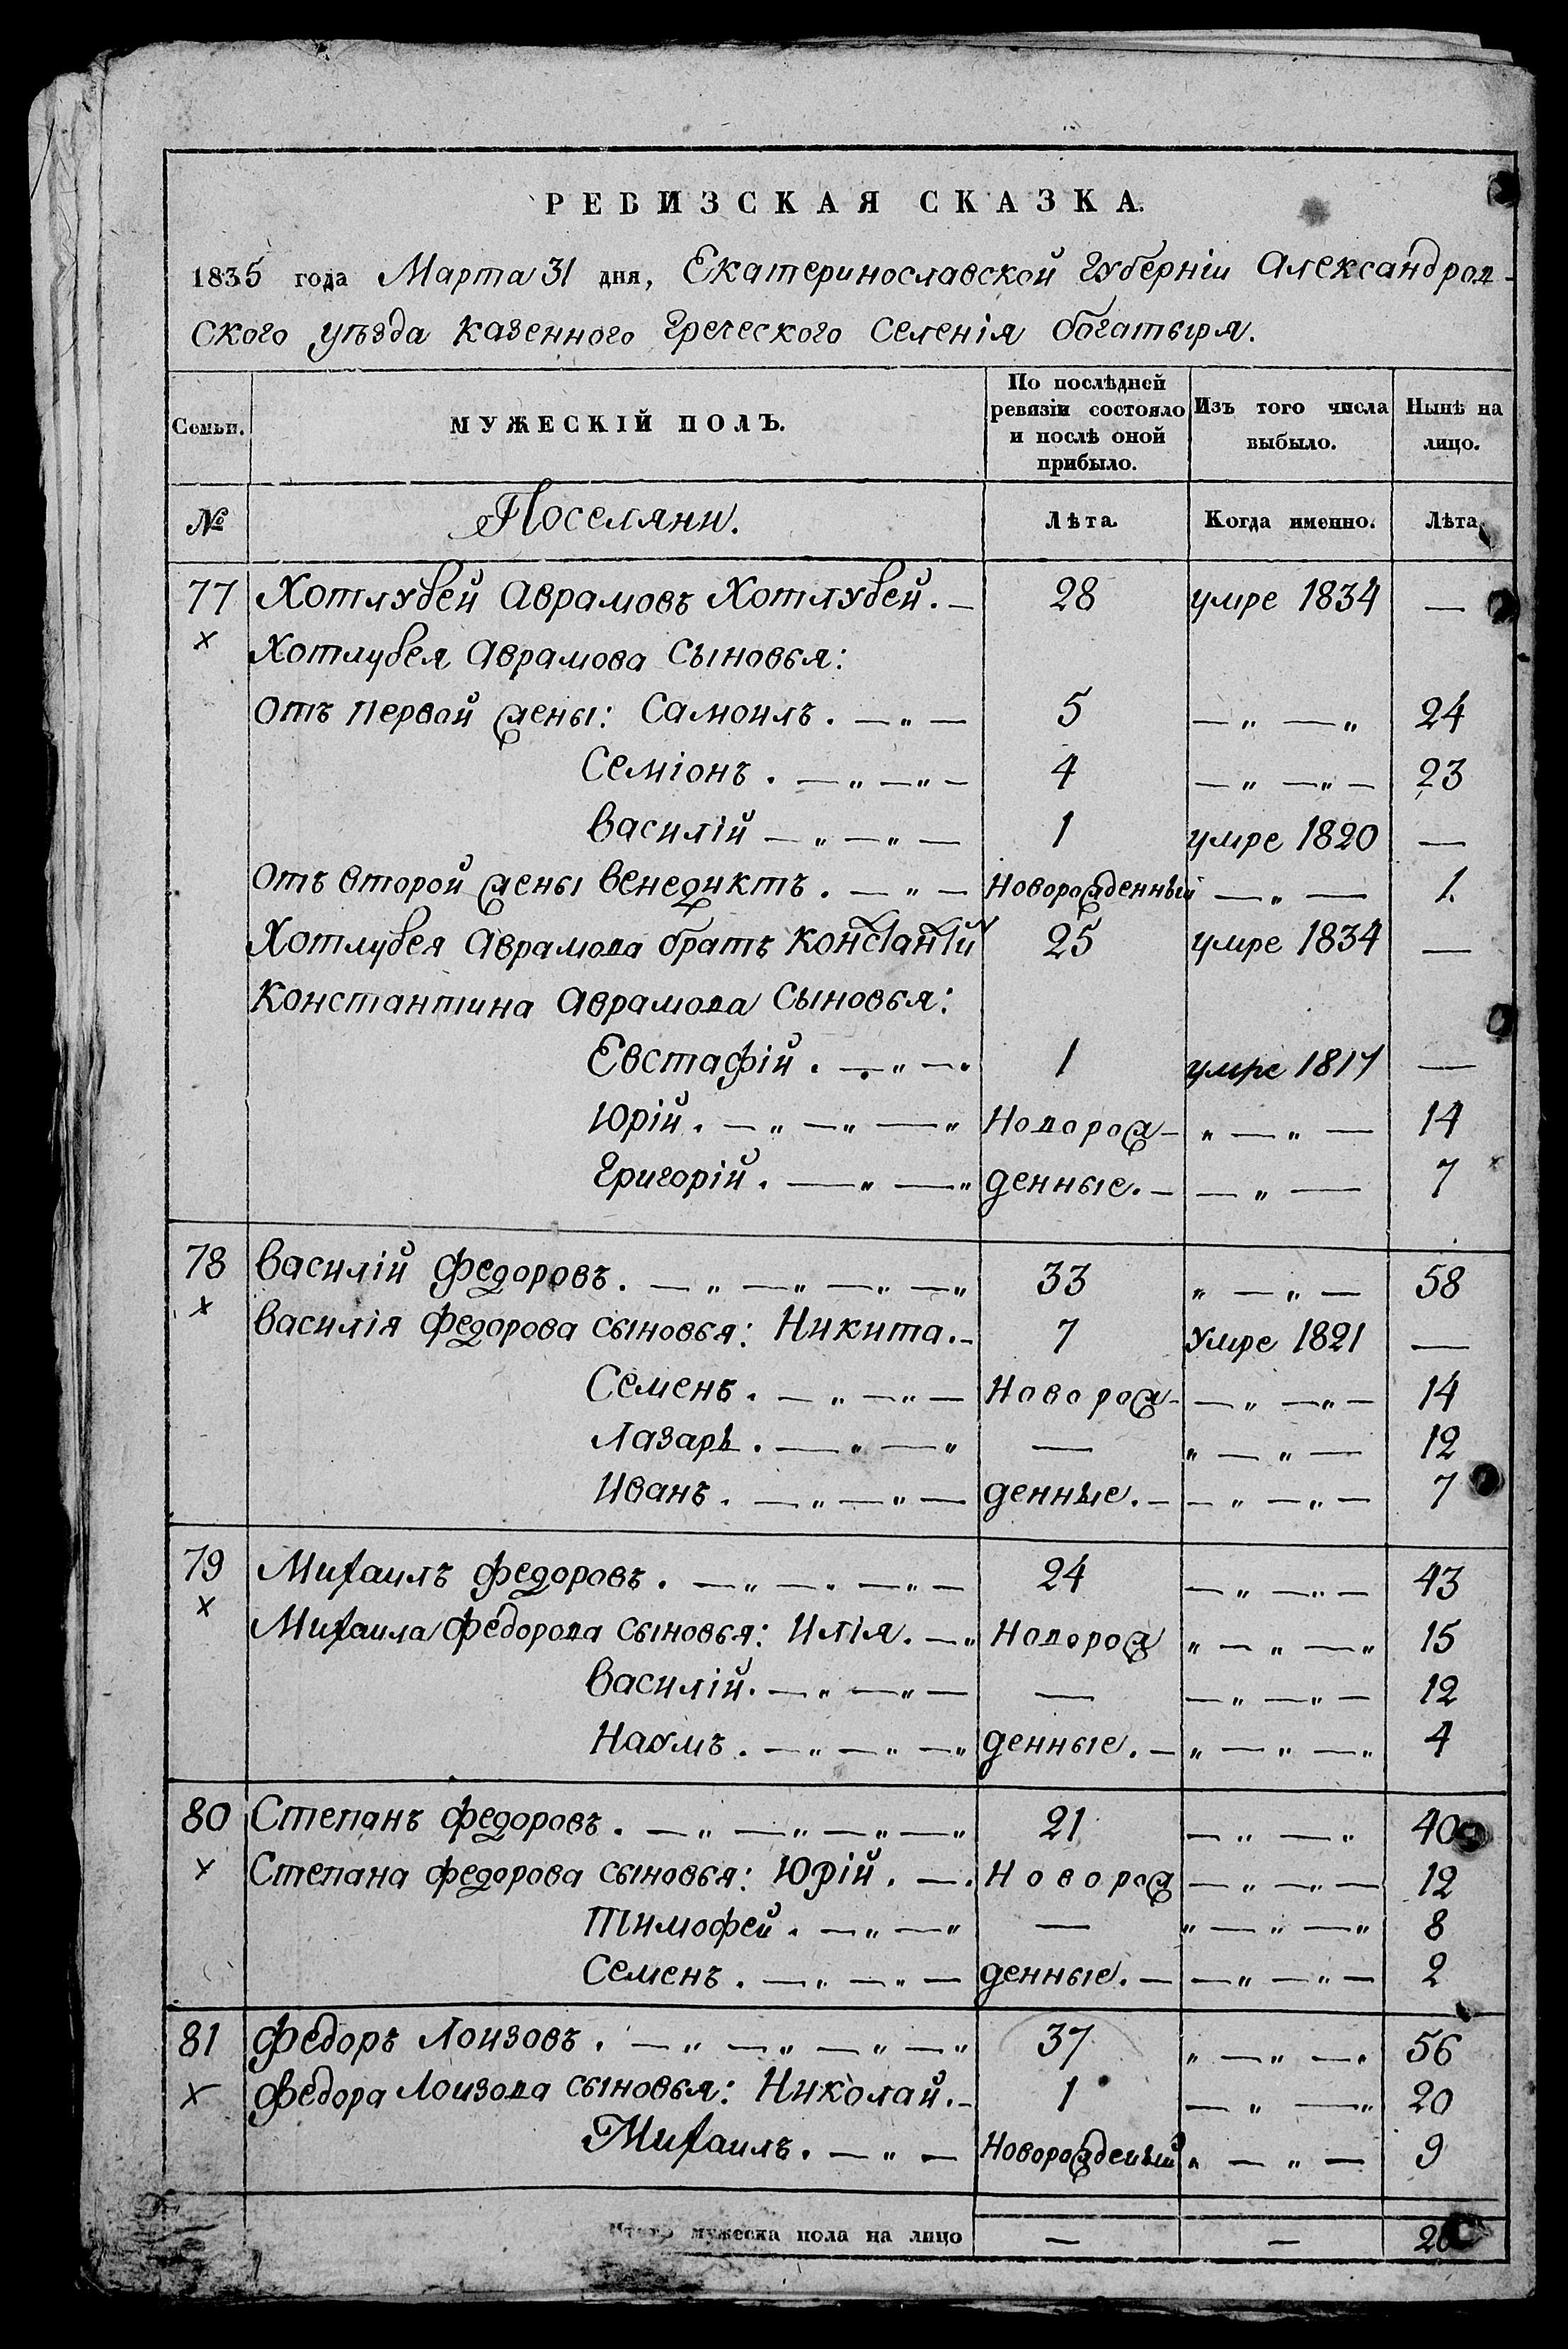 РЕВИЗСКАЯ СКАЗКА.
1835 года Марта 31 дня, Екатеринославской Губерніи Александров-
ского уѣзда казенного Греческого Селенія Богатыря.
Семьи. МУЖЕСКІЙ ПОЛЪ. По послѣдней ревизіи состояло и послѣ оной прибыло. Изъ того числа выбыло. Нынѣ на лицо.
№ Поселяни. Лѣта. Когда именно. Лѣта.
77 Хотлубей Аврамовъ Хотлубей. — 28 умре 1834 —
× Хотлубея Аврамова Сыновья:
Отъ Первой жены: Самоилъ. — „ — 5 — „ — „ 24
Семіонъ. — „ — „ — 4 — „ — „ — 23
Василій — „ — „ — 1 умре 1820 —
Отъ второй жены Венедиктъ. — „ — Новорожденный — „ — 1.
Хотлубея Аврамова братъ Константій 25 умре 1834 —
Константина Аврамова Сыновья:
Евстафій. — „ — „ 1 умре 1817 —
Юрій. — „ — „ — „ Новорож- „ — „ — 14
Григорій. — „ — „ денные. — — „ — 7
78 Василій Федоровъ. — „ — „ — „ — „ 33 „ — „ — 58
× Василія Федорова сыновья: Никита. — 7 Умре 1821 —
Семенъ. — „ — „ — Новорож- — „ — „ — 14
Лазарь. — „ — „ — „ — „ — 12
Иванъ. — „ — „ — денные. — — „ — „ — 7
79 Михаилъ Федоровъ. — „ — „ — „ — 24 — „ — „ — 43
× Михаила Федорова сыновья: Илія. — „ Новорож „ — „ — „ 15
Василій. — „ — „ — — — „ — „ — 12
Наумъ. — „ — „ — „ денные. — „ — „ — „ 4
80 Степанъ Федоровъ. — „ — „ — „ — „ 21 — „ — „ 40
× Степана Федорова сыновья: Юрій. — . Новорож — „ — „ — 12
Тимофей. — „ — „ — „ — „ — „ 8
Семенъ. — „ — „ — денные. — — „ — „ — 2
81 Федоръ Лоизовъ. — „ — „ — „ — „ 37 „ — „ — „ 56
× Федора Лоизова сыновья: Николай. — 1 — „ — „ 20
Михаилъ. — „ — Новорожденый „ — „ — 9
Итого мужеска пола на лицо — —